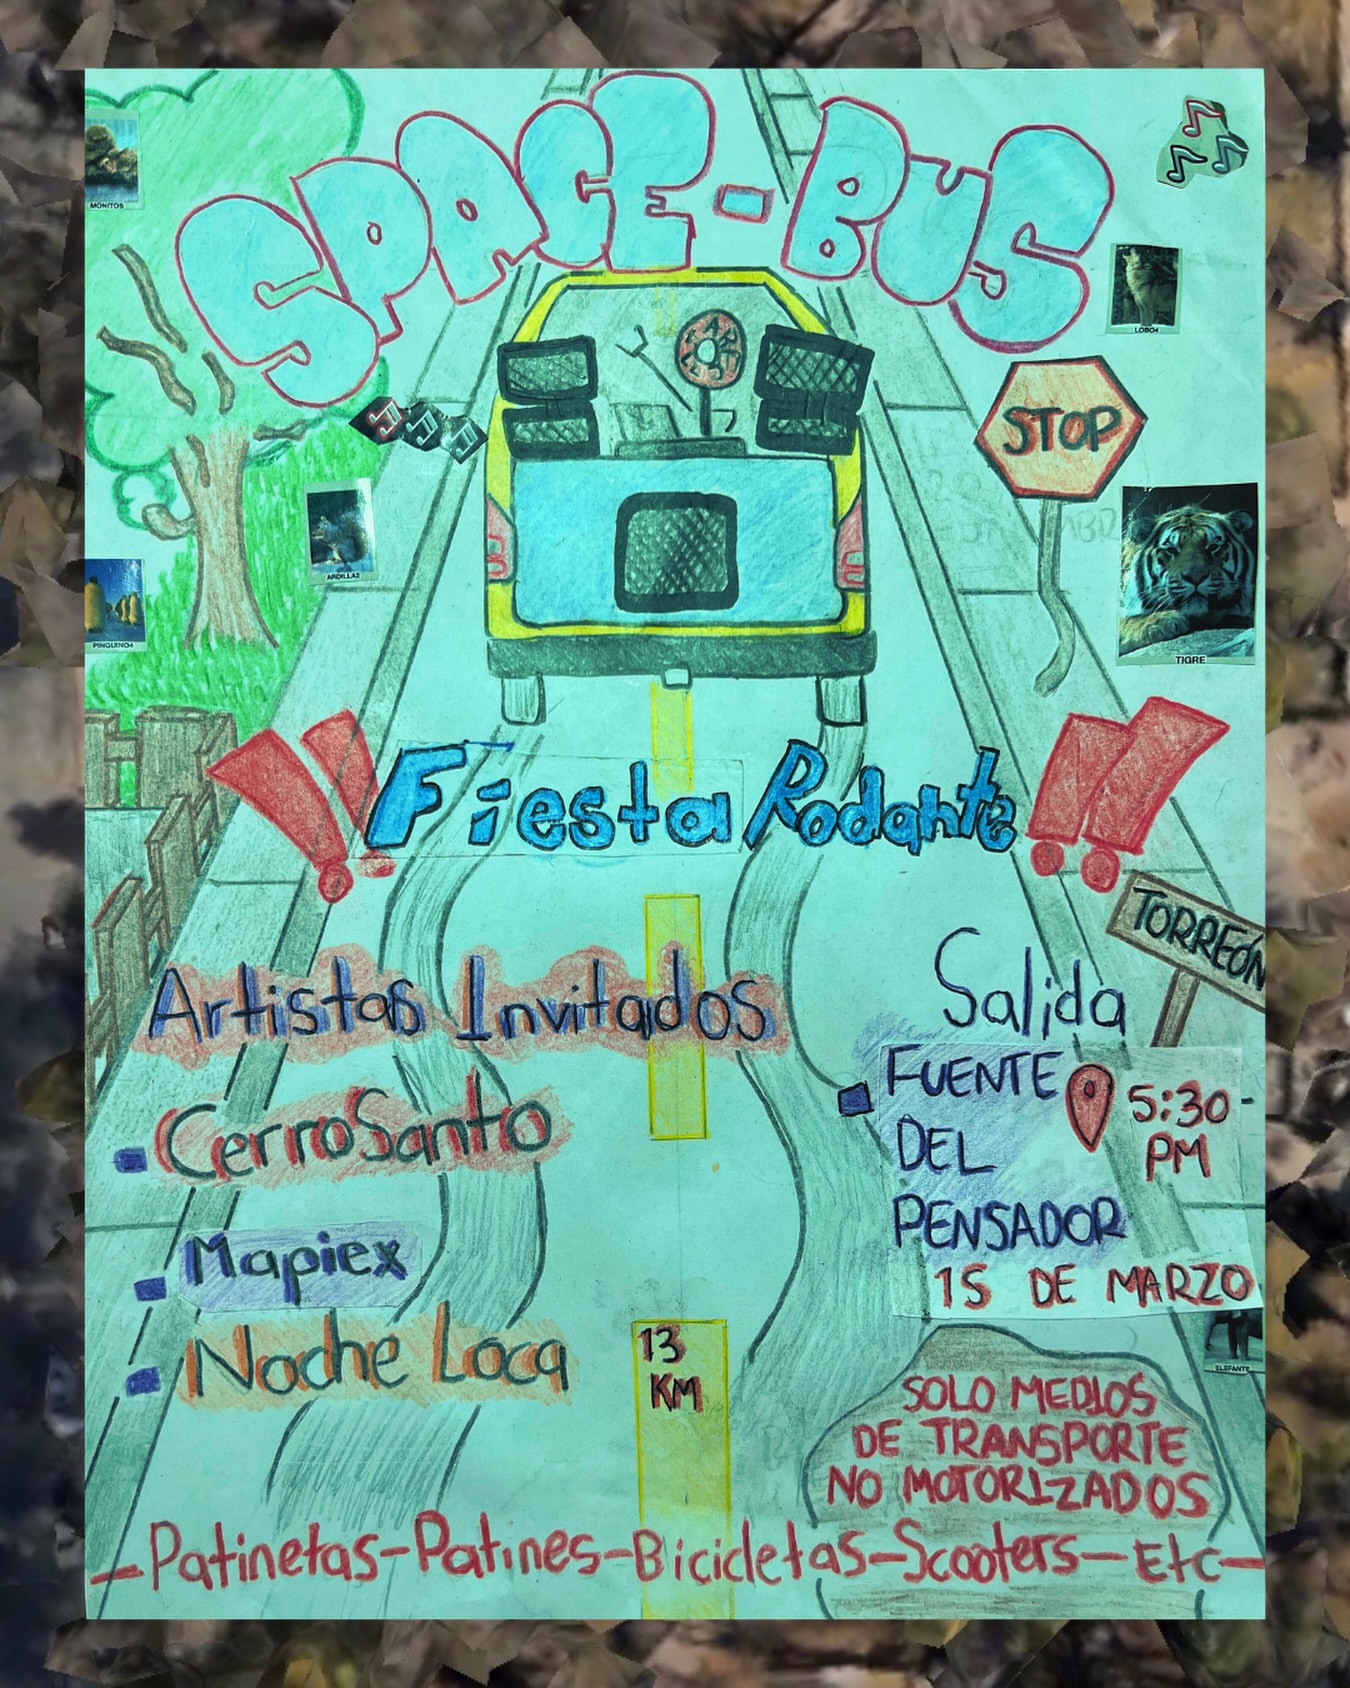 SPACE-BUS
MONITOS
LOBO4
STOP
ARDILLA2
PINGUINO4
TIGRE
!! Fiesta Rodante !!
TORREÓN
Artistas Invitados
CerroSanto
Mapiex
Noche Loca
Salida
FUENTE
DEL
PENSADOR
5:30
PM
15 DE MARZO
ELEFANTE
13
KM
SOLO MEDIOS
DE TRANSPORTE
NO MOTORIZADOS
-Patinetas-Patines-Bicicletas-Scooters-Etc-